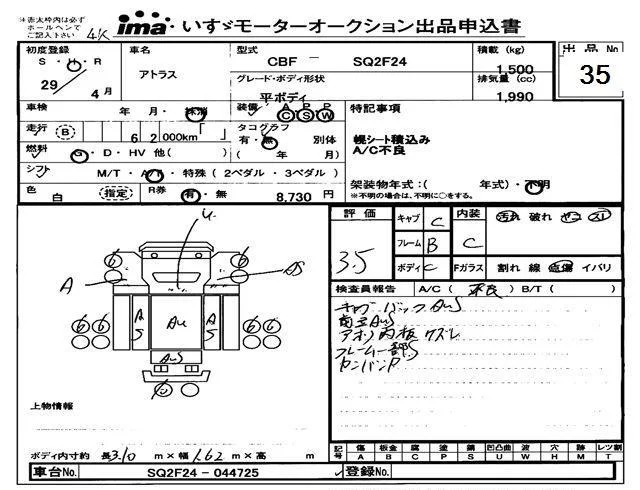 ※赤太枠内は必ず
ホールペンで
ご記入下さい
ima いすゞモーターオークション出品申込書
初度登録 S・H・R 29 4月
車名 アトラス
型式 CBF － SQ2F24
グレード・ボディ形状 平ボディ
積載（kg） 1,500
排気量（cc） 1,990
出品No 35
車検 年 月・抹消
装備 A P P C S W
走行 B 6 2 000km「 」
タコグラフ 有・無 別体（ 年 月）
燃料 G・D・HV 他（ ）
シフト M/T・A/T・特殊（2ペダル・3ペダル）
色 白 指定
R券 有・無 8,730 円
特記事項
幌シート積込み
A/C不良
架装物年式：（ 年式）・不明
※不明の場合は、不明に○をする。
評価 3.5
キャブ C
フレーム B
ボディ C
内装 C 汚れ 破れ ヤニ スレ
Fガラス 割れ 線 点傷 イバリ
検査員報告 A/C（ 不良 ）B/T（ ）
キャブバックAuS
アオリ内板クズレ
フレーム一部S
U
6 6
A AS
A S Au A S
6 6 6 6
AuS
6
上物情報
ボディ内寸約 長3.10 m×幅1.62 m×高 m
記号 傷A 板金B 腐C 塗P 錆S 凹凸曲U 波W 穴H 跡M レツ割T
車台No. SQ2F24－044725
登録No.